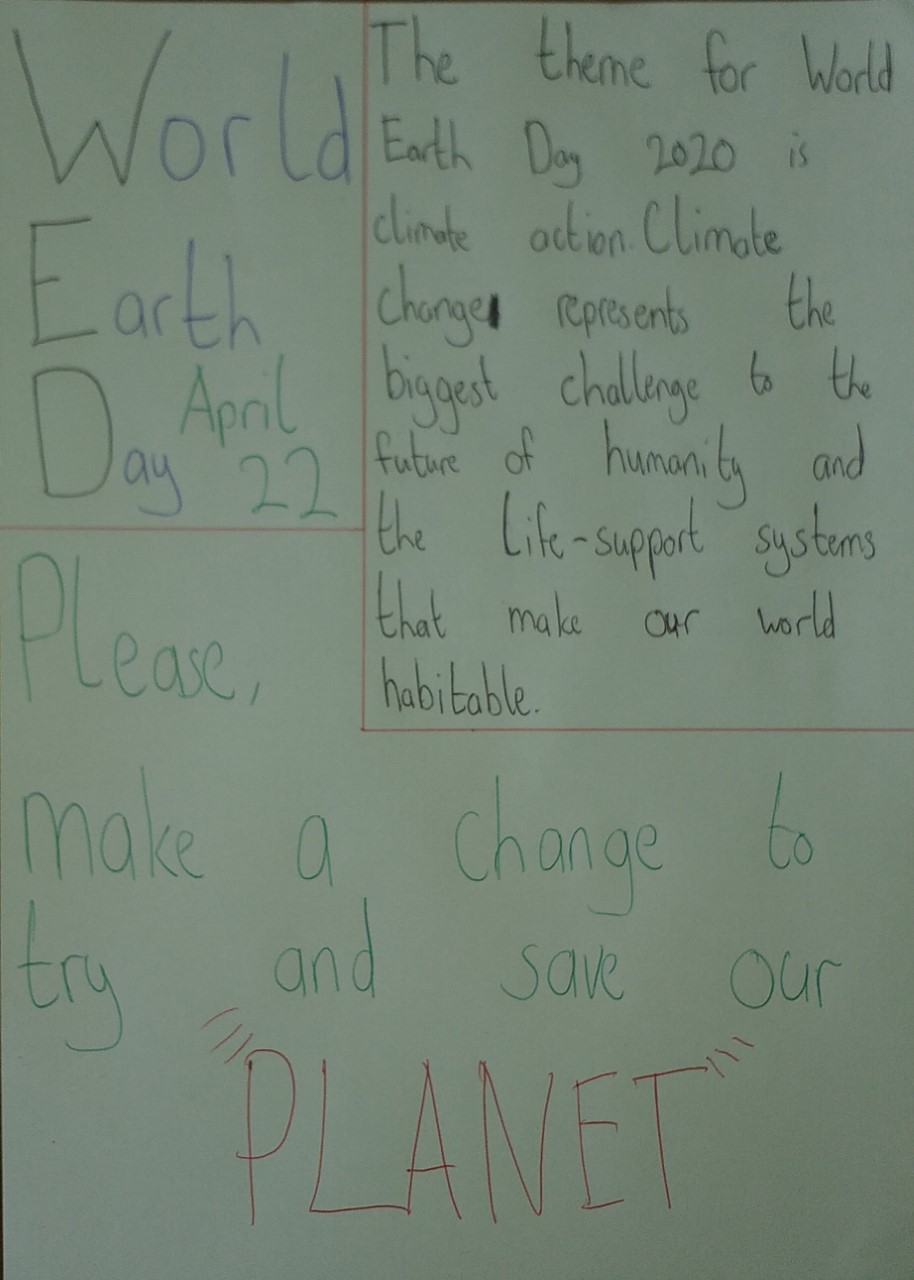 World
Earth
Day April
22
The theme for World
Earth Day 2020 is
climate action. Climate
change represents the
biggest challenge to the
future of humanity and
the life-support systems
that make our world
habitable.
Please,
make a change to
try and save our
PLANET